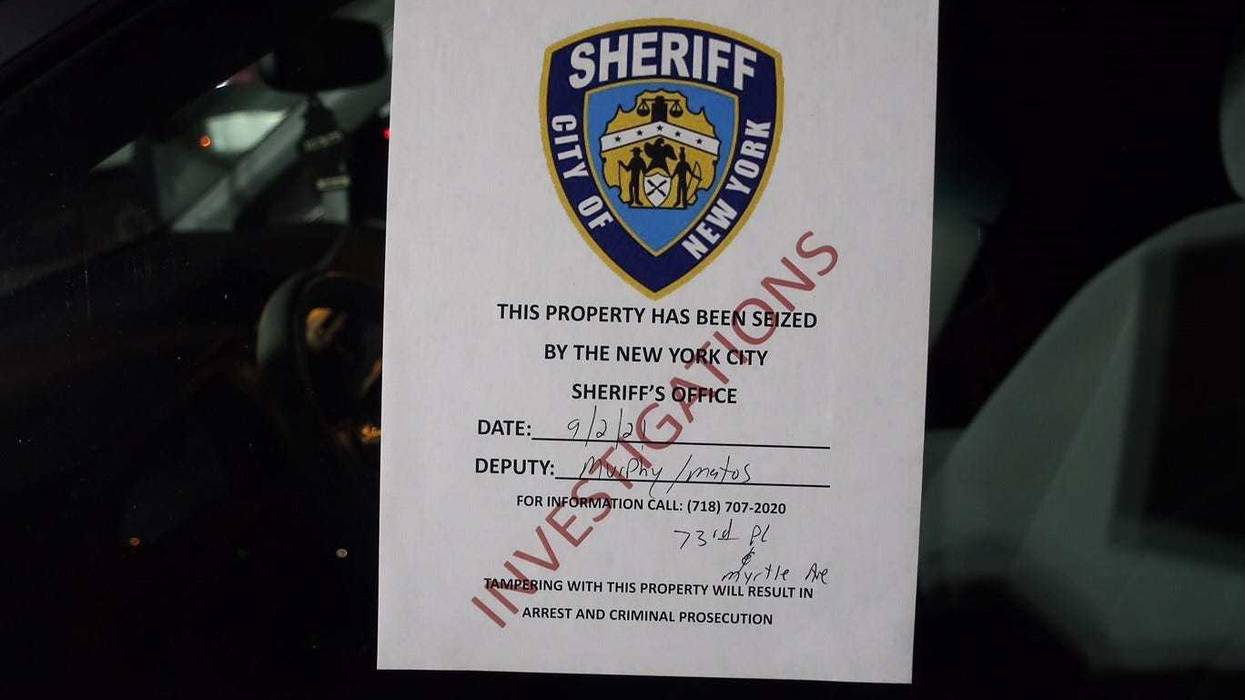 SHERIFF
CITY OF
NEW YORK
THIS PROPERTY HAS BEEN SEIZED
BY THE NEW YORK CITY
SHERIFF'S OFFICE
DATE: 9/2/21
DEPUTY: Murphy/matos
FOR INFORMATION CALL: (718) 707-2020
73rd Pl
&
myrtle Ave
TAMPERING WITH THIS PROPERTY WILL RESULT IN
ARREST AND CRIMINAL PROSECUTION
INVESTIGATIONS